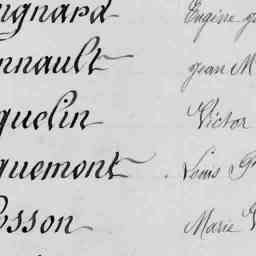 ngnard Eugène
nnault Jean M
quelin Victor
quemont Louis
osson Marie